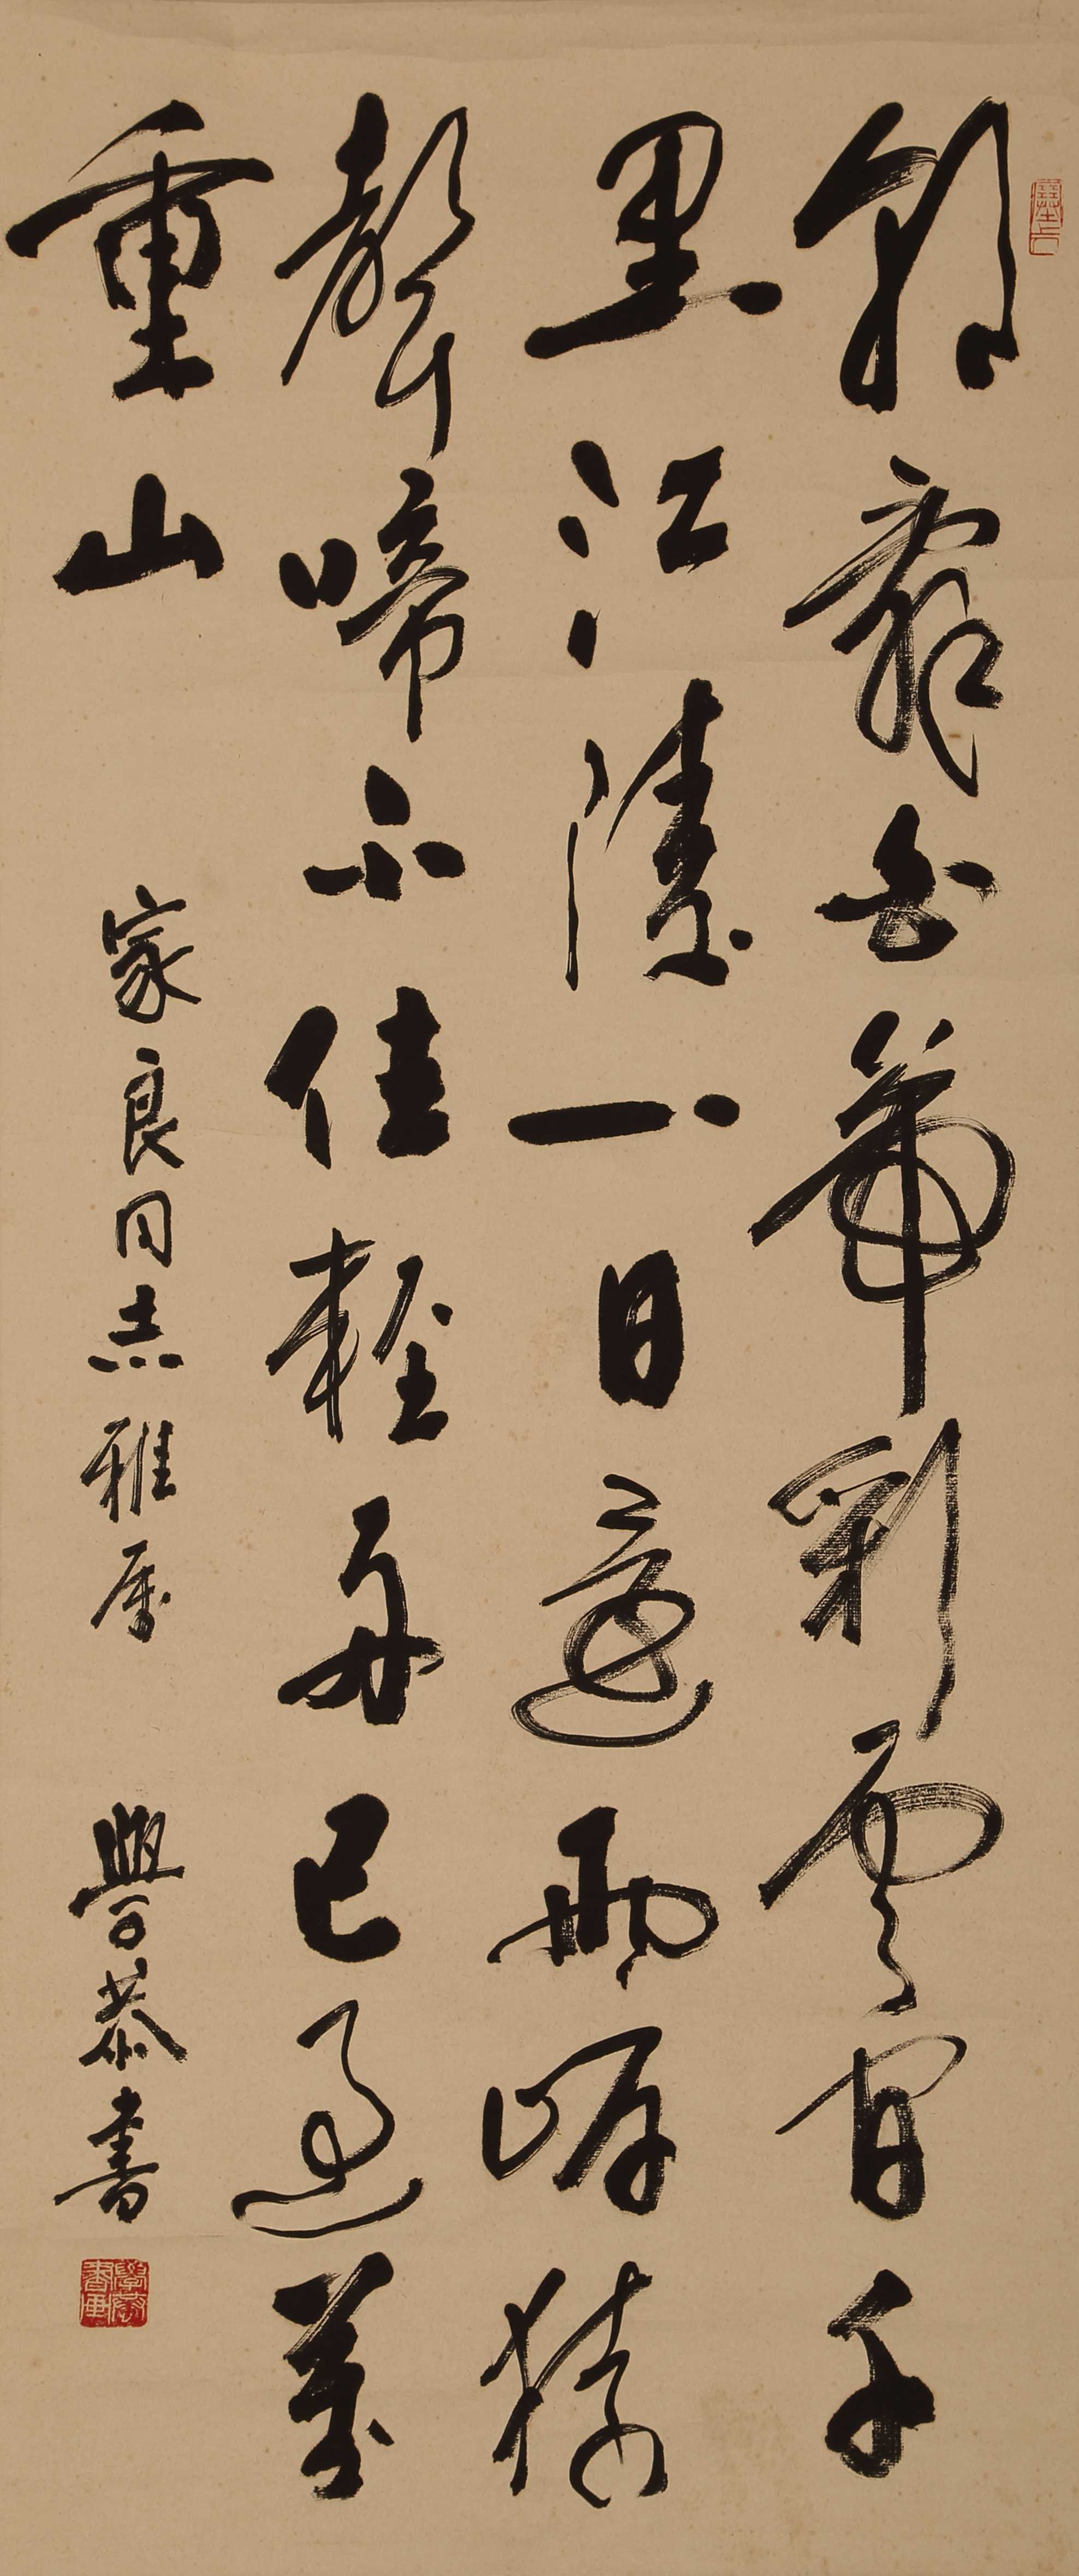 朝辭白帝彩雲間千
里江陵一日還兩岸猿
聲啼不住輕舟已過萬
重山
家良同志雅属
學恭書
學恭書画